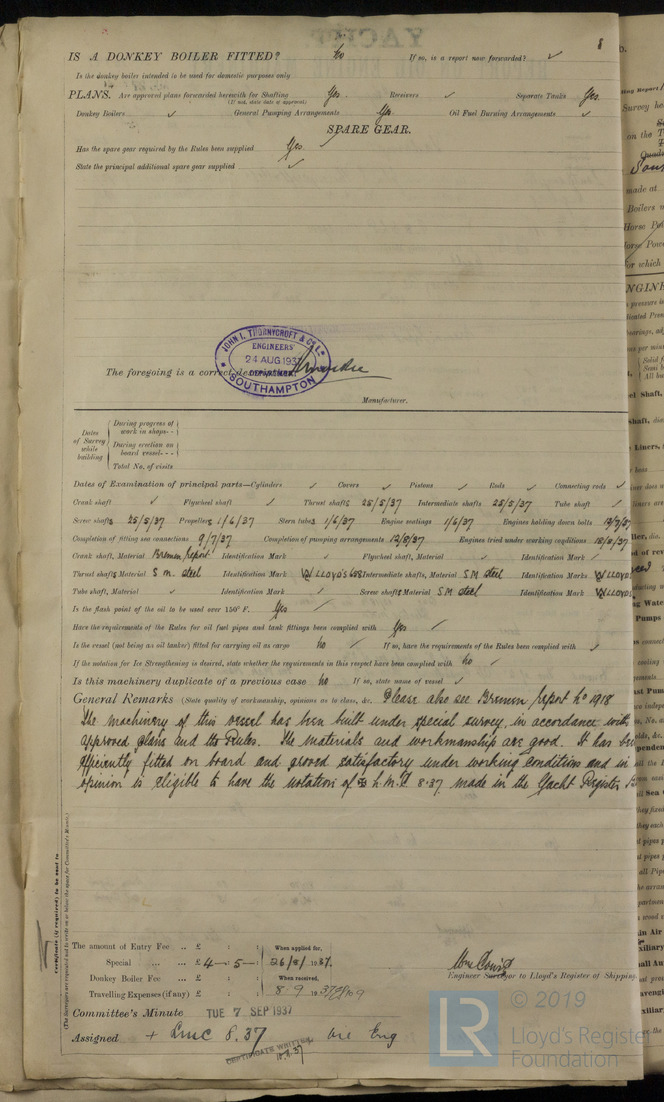 YACHT.
8
IS A DONKEY BOILER FITTED? no If so, is a report now forwarded? ✓
Is the donkey boiler intended to be used for domestic purposes only
PLANS. Are approved plans forwarded herewith for Shafting Yes. Receivers ✓ Separate Tanks Yes.
(If not, state date of approval)
Donkey Boilers ✓ General Pumping Arrangements Yes Oil Fuel Burning Arrangements ✓
SPARE GEAR.
Has the spare gear required by the Rules been supplied Yes. ✓
State the principal additional spare gear supplied ✓
JOHN I. THORNYCROFT & Co Ld
ENGINEERS'
24 AUG 1937
DEPARTMENT,
SOUTHAMPTON
The foregoing is a correct description,
Manufacturer.
Dates of Survey while building
During progress of work in shops - -
During erection on board vessel - - -
Total No. of visits
Dates of Examination of principal parts—Cylinders ✓ Covers ✓ Pistons ✓ Rods ✓ Connecting rods ✓
Crank shaft ✓ Flywheel shaft ✓ Thrust shafts 25/5/37 Intermediate shafts 25/5/37 Tube shaft ✓
Screw shafts 25/5/37 Propellers 1/6/37 Stern tubes 1/6/37 Engine seatings 1/6/37 Engines holding down bolts
Completion of fitting sea connections 9/7/37 Completion of pumping arrangements 12/8/37 Engines tried under working conditions 18/8/37
Crank shaft, Material Bremen report Identification Mark ✓ Flywheel shaft, Material ✓ Identification Mark ✓
Thrust shafts Material S M. steel Identification Mark LLOYD'S Intermediate shafts, Material S M steel Identification Marks LLOYD'S
Tube shaft, Material ✓ Identification Mark ✓ Screw shafts Material S M steel Identification Marks LLOYD'S
Is the flash point of the oil to be used over 150° F. Yes ✓
Have the requirements of the Rules for oil fuel pipes and tank fittings been complied with Yes ✓
Is the vessel (not being an oil tanker) fitted for carrying oil as cargo no ✓ If so, have the requirements of the Rules been complied with ✓
If the notation for Ice Strengthening is desired, state whether the requirements in this respect have been complied with no ✓
Is this machinery duplicate of a previous case no If so, state name of vessel ✓
General Remarks (State quality of workmanship, opinions as to class, &c. Please also see Bremen report No 1918
The machinery of this vessel has been built under special survey, in accordance with
approved plans and the Rules. The materials and workmanship are good. It has been
efficiently fitted on board and proved satisfactory under working conditions and in
opinion is eligible to have the notation of L.M.C 8.37 made in the Yacht Register,
Certificate (if required) to be sent to
(The Surveyors are requested not to write on or below the space for Committee's Minute.)
The amount of Entry Fee ... £ : : When applied for,
Special ... ... £ 4 - 5 - : 26/8/1937.
Donkey Boiler Fee ... £ : : When received,
Travelling Expenses (if any) £ : : 8.9 1937
Engineer Surveyor to Lloyd's Register of Shipping.
Committee's Minute TUE 7 SEP 1937
Assigned + Lmc 8.37 Oil Eng
CERTIFICATE WRITTEN
LR © 2019
Lloyd's Register
Foundation